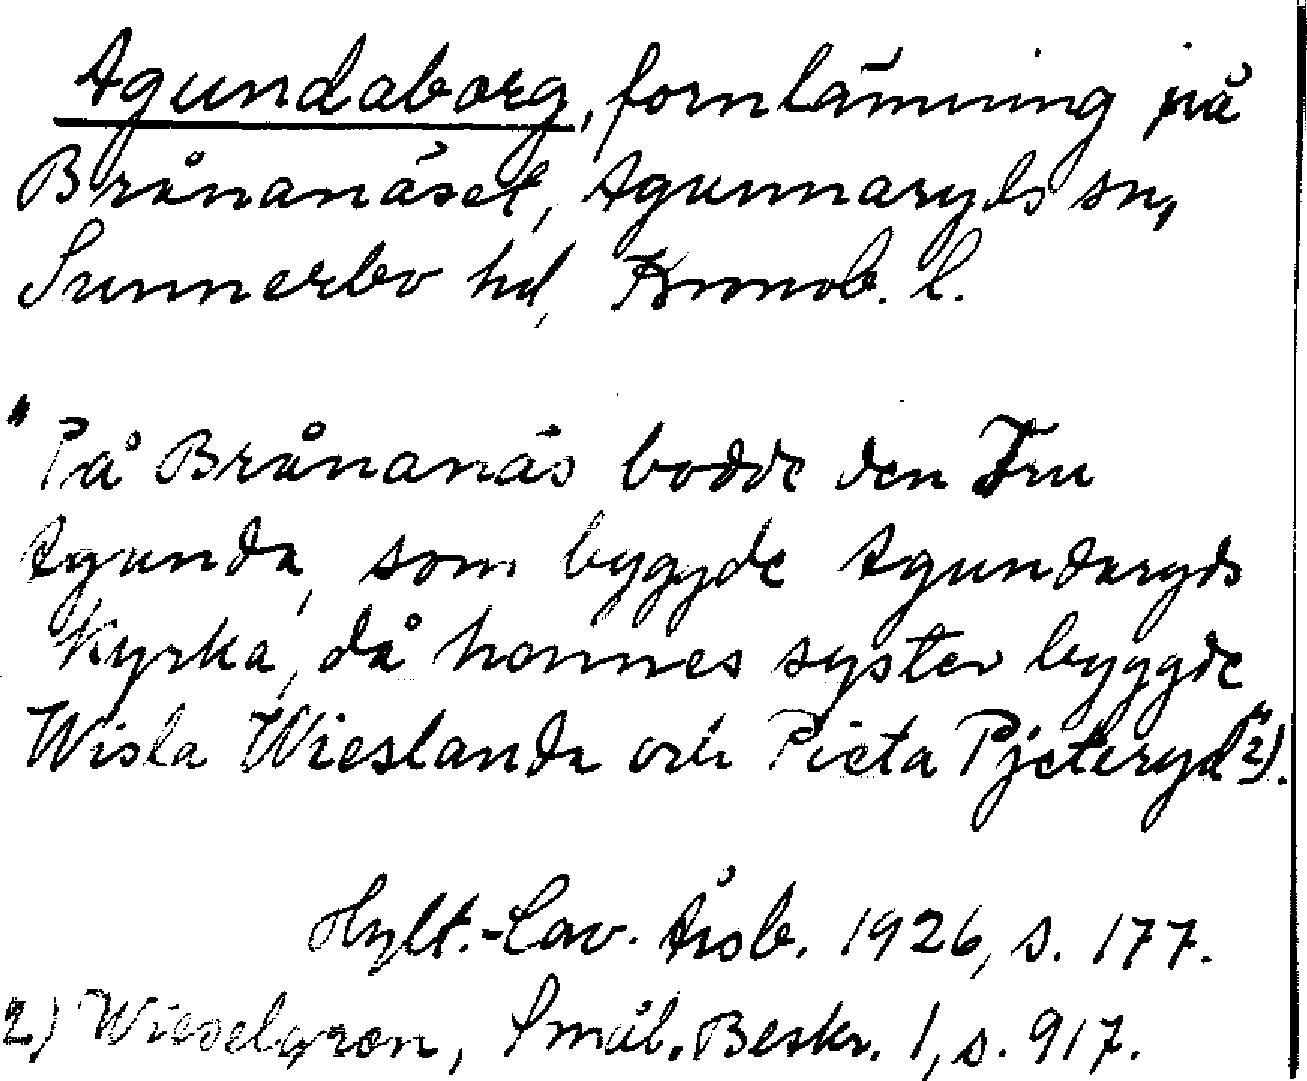 Agundaborg, fornlämning på
Brånanäset, Agunnaryds sn,
Sunnerbo hd, Kronob. l.
"På Brånanäs bodde den Fru
Agunda, som bygyde Agundaryds
Kyrka, då honnes syster byggde
Wisla Wieslanda och Pieta Pjeteryd"2).
Hylt.-Cav. Årsb. 1926, s. 177.
2) Wieselgren, Smål. Beskr. 1, s. 917.